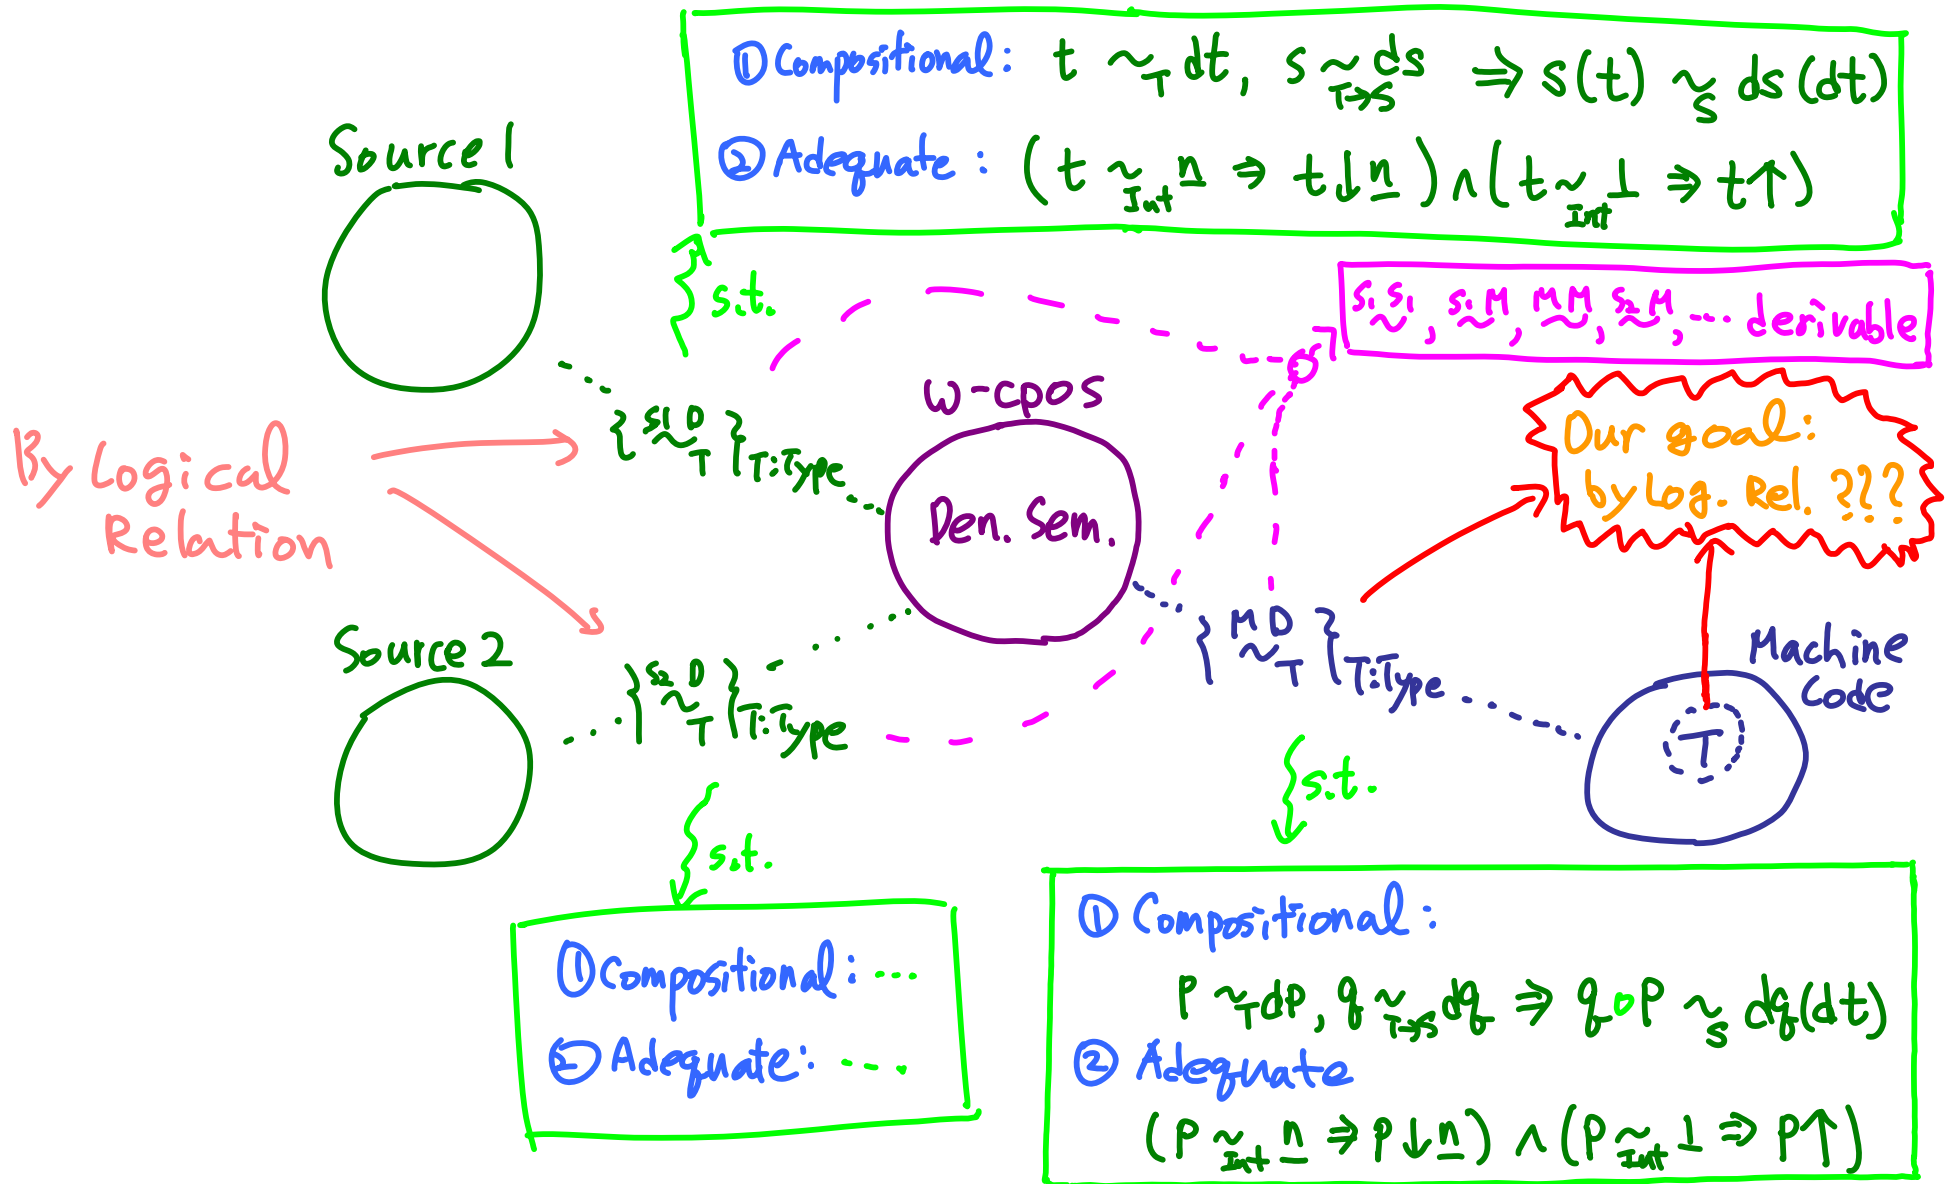 ① Compositional: t ~_T dt, s ~_{T→S} ds ⇒ s(t) ~_S ds(dt)
② Adequate: (t ~_Int n ⇒ t↓n) ∧ (t ~_Int ⊥ ⇒ t↑)
Source 1
s.t.
S₁ S₁ ~, S₁ M ~, M M ~, S₂ M ~, ... derivable
{S1 D ~ T}T:Type
By Logical
Relation
ω-cpos
Den. Sem.
Our goal:
by Log. Rel. ???
Source 2
{S2 D ~ T}T:Type
{M D ~ T}T:Type
Machine
Code
T
s.t.
s.t.
① Compositional: ...
② Adequate: ....
① Compositional:
P ~_T dP, q ~_{T→S} dq ⇒ q∘P ~_S dq(dt)
② Adequate
(P ~_Int n ⇒ P↓n) ∧ (P ~_Int ⊥ ⇒ P↑)